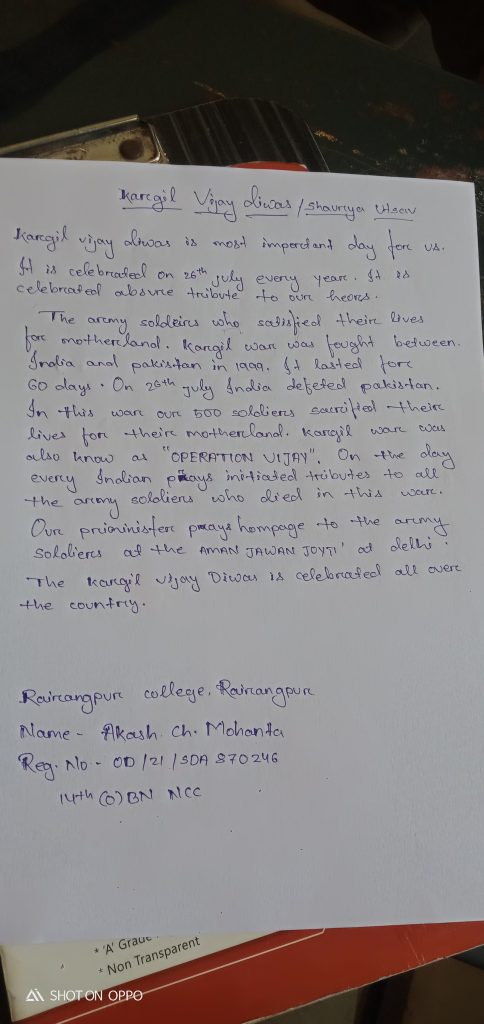 Kargil Vijay diwas / Shaurya Utsav
Kargil vijay diwas is most important day for us.
It is celebrated on 26th july every year. It is
celebrated absvre tribute to our heors.
The army soldeirs who satisfied their lives
for motherland. Kargil war was feught between.
India and pakistan in 1999. It lasted for
60 days. On 26th july India defeted pakistan.
In this war our 500 soldiers sacrified their
lives for their motherland. Kargil war was
also know as "OPERATION VIJAY". On the day
every Indian pays initiated tributes to all
the army soldiers who died in this war.
Our priminister pays hompage to the army
soldiers at the AMAN JAWAN JOYTI' at delhi.
The Kargil vijay Diwas is celebrated all over
the country.
Rairangpur college, Rairangpur
Name - Akash. Ch. Mohanta
Reg. No - OD/21/SDA 870246
14th (O) BN NCC
* 'A' Grade
* Non Transparent
SHOT ON OPPO